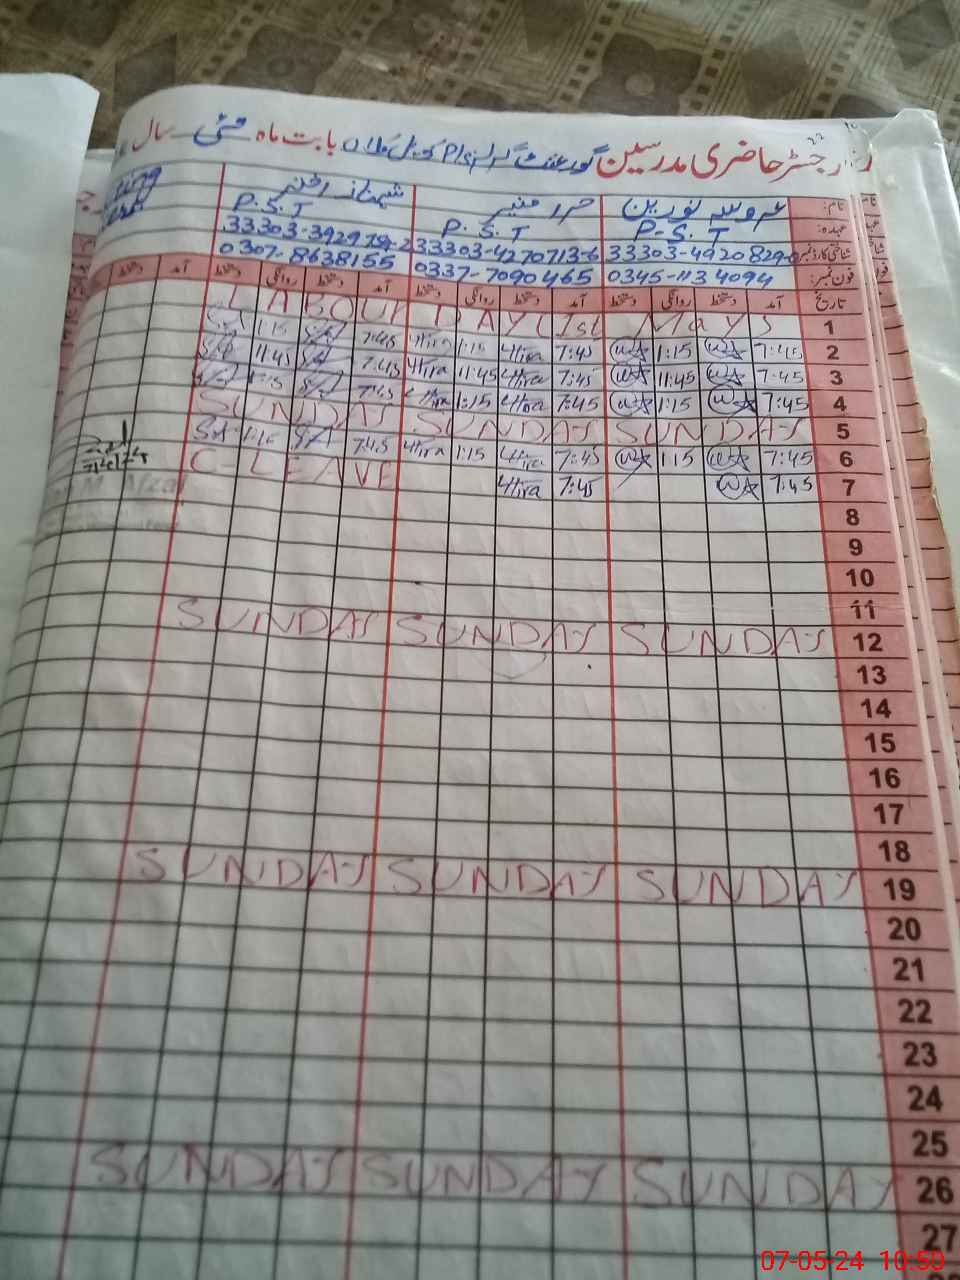 رجسٹر حاضری مدرسین گورنمنٹ گرلز P/S بابت ماہ مئی سال
نام: عروسہ نورین حرا منیر شہناز اختر
عہدہ: P.S.T P.S.T P.S.T
شناختی کارڈ نمبر 33303-4920829-0 33303-4270713-6 33303-3929792-2
فون نمبر: 0345-1134094 0337-7090465 0307-8638155
تاریخ آمد دستخط روانگی دستخط آمد دستخط روانگی دستخط آمد دستخط روانگی دستخط آمد دستخط
LABOUR DAY (1st May) 1
S.A 1:15 S.A 7:45 Hira 1:15 Hira 7:45 1:15 7:45 2
S.A 11:45 S.A 7:45 Hira 11:45 Hira 7:45 11:45 7:45 3
S.A 1:15 S.A 7:45 Hira 1:15 Hira 7:45 1:15 7:45 4
SUNDAY SUNDAY SUNDAY 5
S.A 1:15 S.A 7:45 Hira 1:15 Hira 7:45 1:15 7:45 6
C-LEAVE Hira 7:45 7:45 7
8
9
10
11
SUNDAY SUNDAY SUNDAY 12
13
14
15
16
17
18
SUNDAY SUNDAY SUNDAY 19
20
21
22
23
24
25
SUNDAY SUNDAY SUNDAY 26
27
07-05-24 10:50